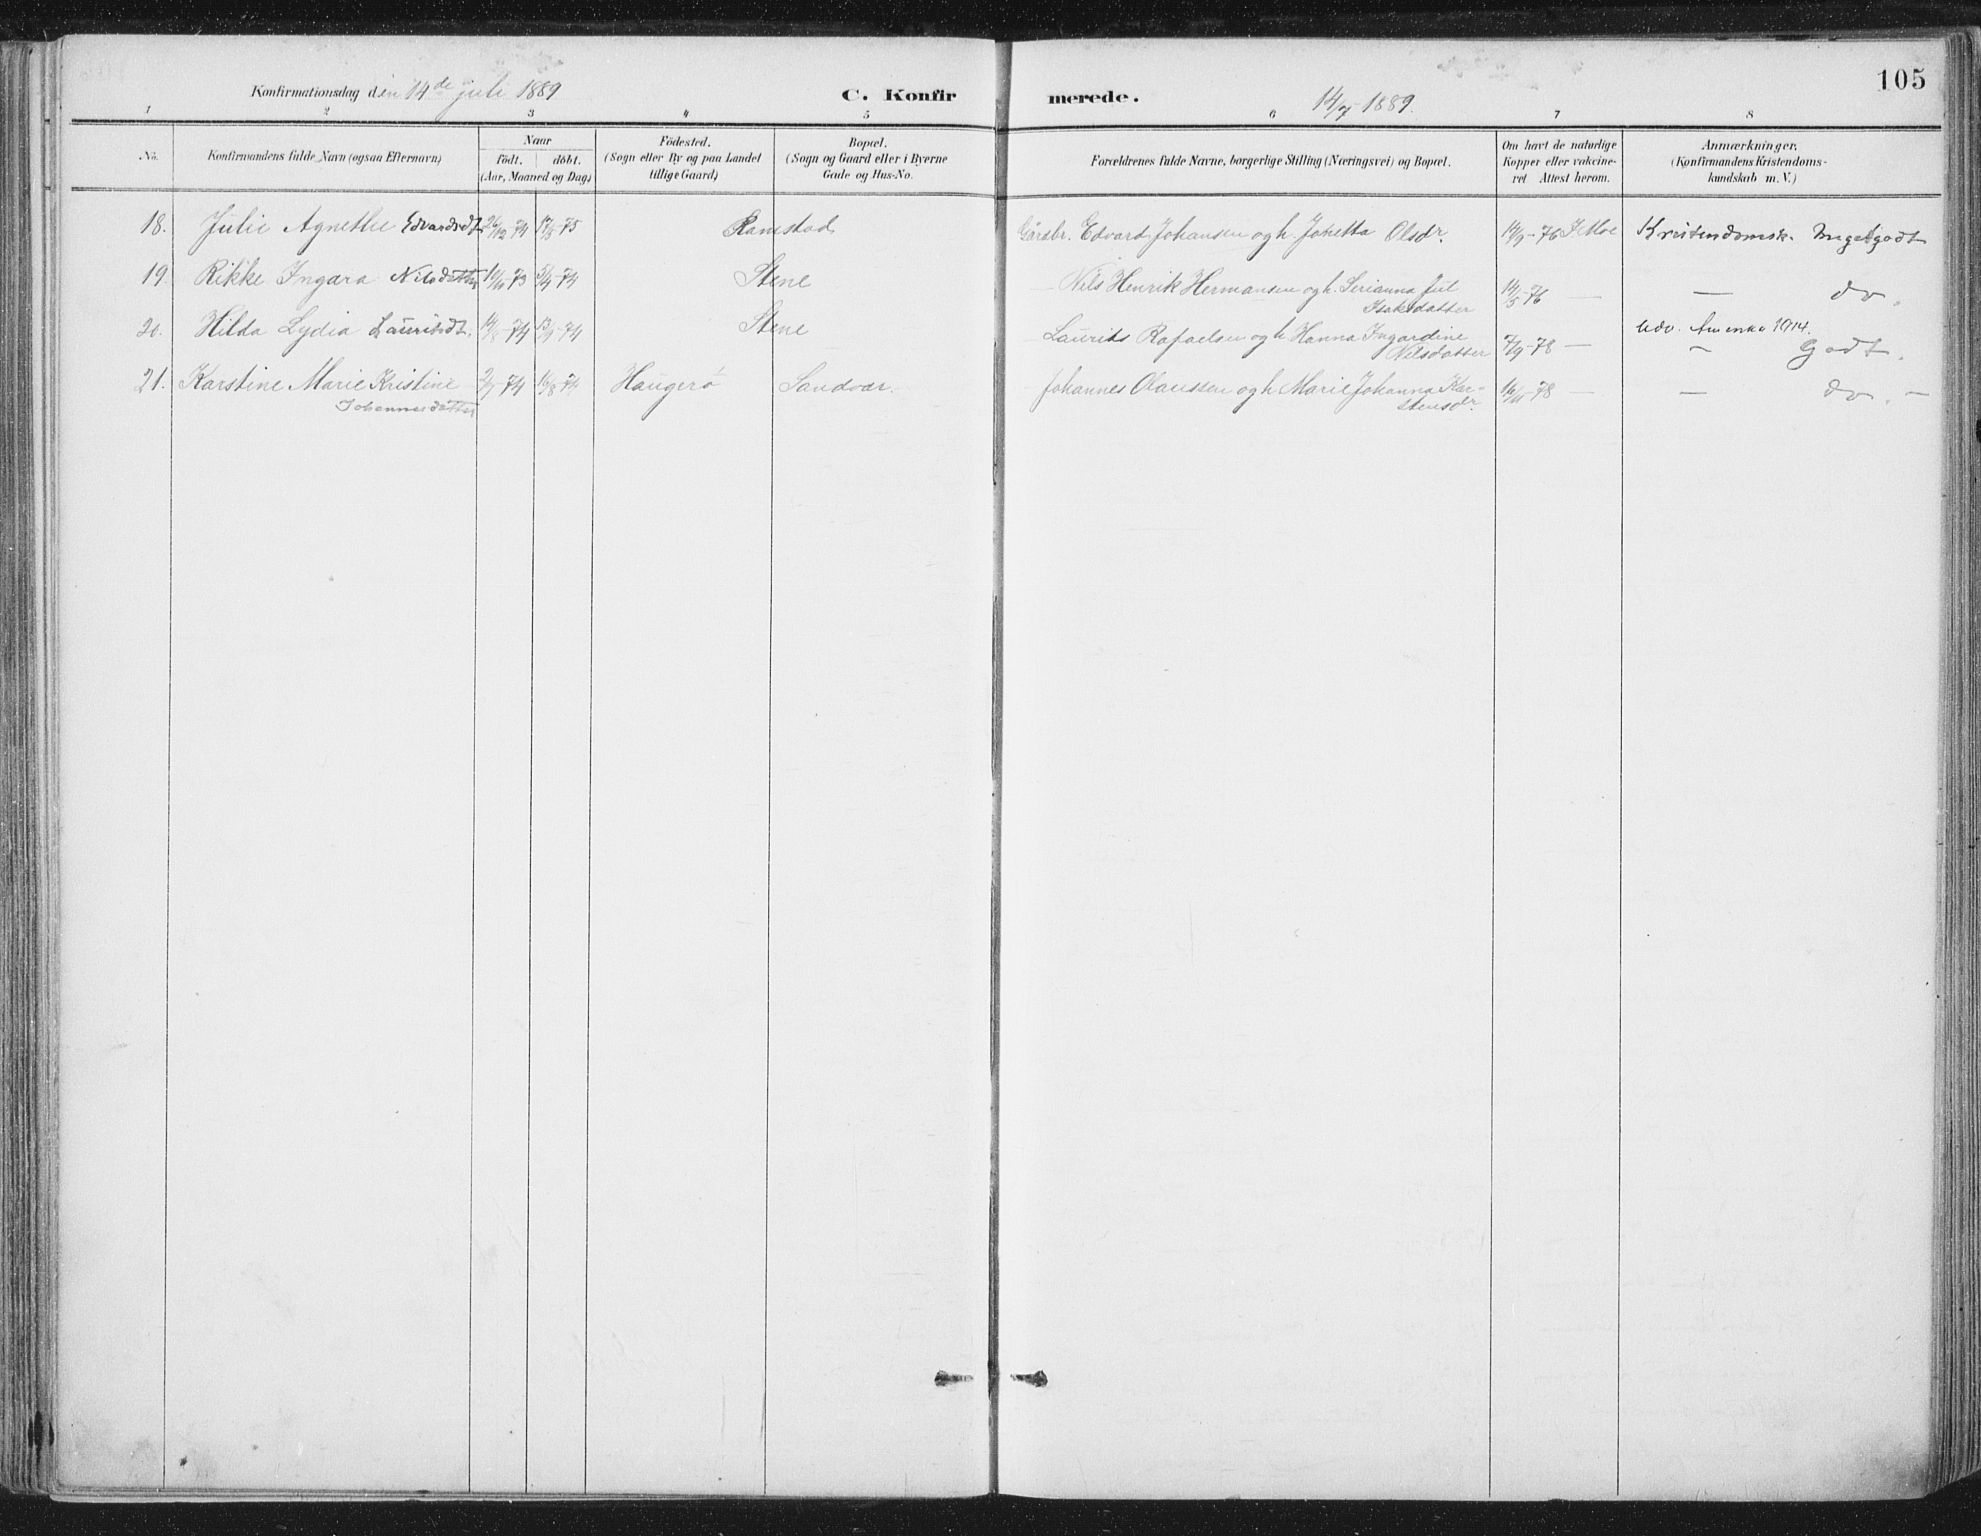 Konfirmationsdag den 14de juli 1889
C. Konfirmerede.
14/7 1889.
105
1 2 3 4 5 6 7 8
No.
Konfirmandens fulde Navn (ogsaa Efternavn)
Naar
födt. döbt.
(Aar, Maaned og Dag)
Födested.
(Sogn eller By og paa Landet
tillige Gaard)
Bopæl.
(Sogn og Gaard eller i Byerne
Gade og Hus-No.
Forældrenes fulde Navne, borgerlige Stilling (Næringsvei) og Bopæl.
Om havt de naturlige
Kopper eller vakcine-
ret Attest herom.
Anmærkninger.
(Konfirmandens Kristendoms-
kundskab m. V.)
18. Julie Agnethe Edvardsdt. 26/12 74 75 Ramstad Gårdbr. Edvard Johansen og h. Jonetta Olsdr. 14/9-76 Kristendomsk. Meget godt
19. Rikke Ingara Nilsdatter 19/10 73 5/4-74 Stene — Nils Henrik Hermansen og h. Serianna Jul
Isaksdatter 14/5 76 — — do.
20. Hilda Lydia Lauritsdt. 14/8-74 13/9-74 Stene — Laurits Rafaelsen og h. Hanna Ingardine
Nilsdatter 7/9-78 — Udv. Amerika 1914.
Godt.
21. Karstine Marie Kristine
Johannesdatter 2/7 74 16/8 74 Haugerö Sandvær. Johannes Olaussen og h. Marie Johanna Kar-
stensdr. 16/11-78 — — do. —